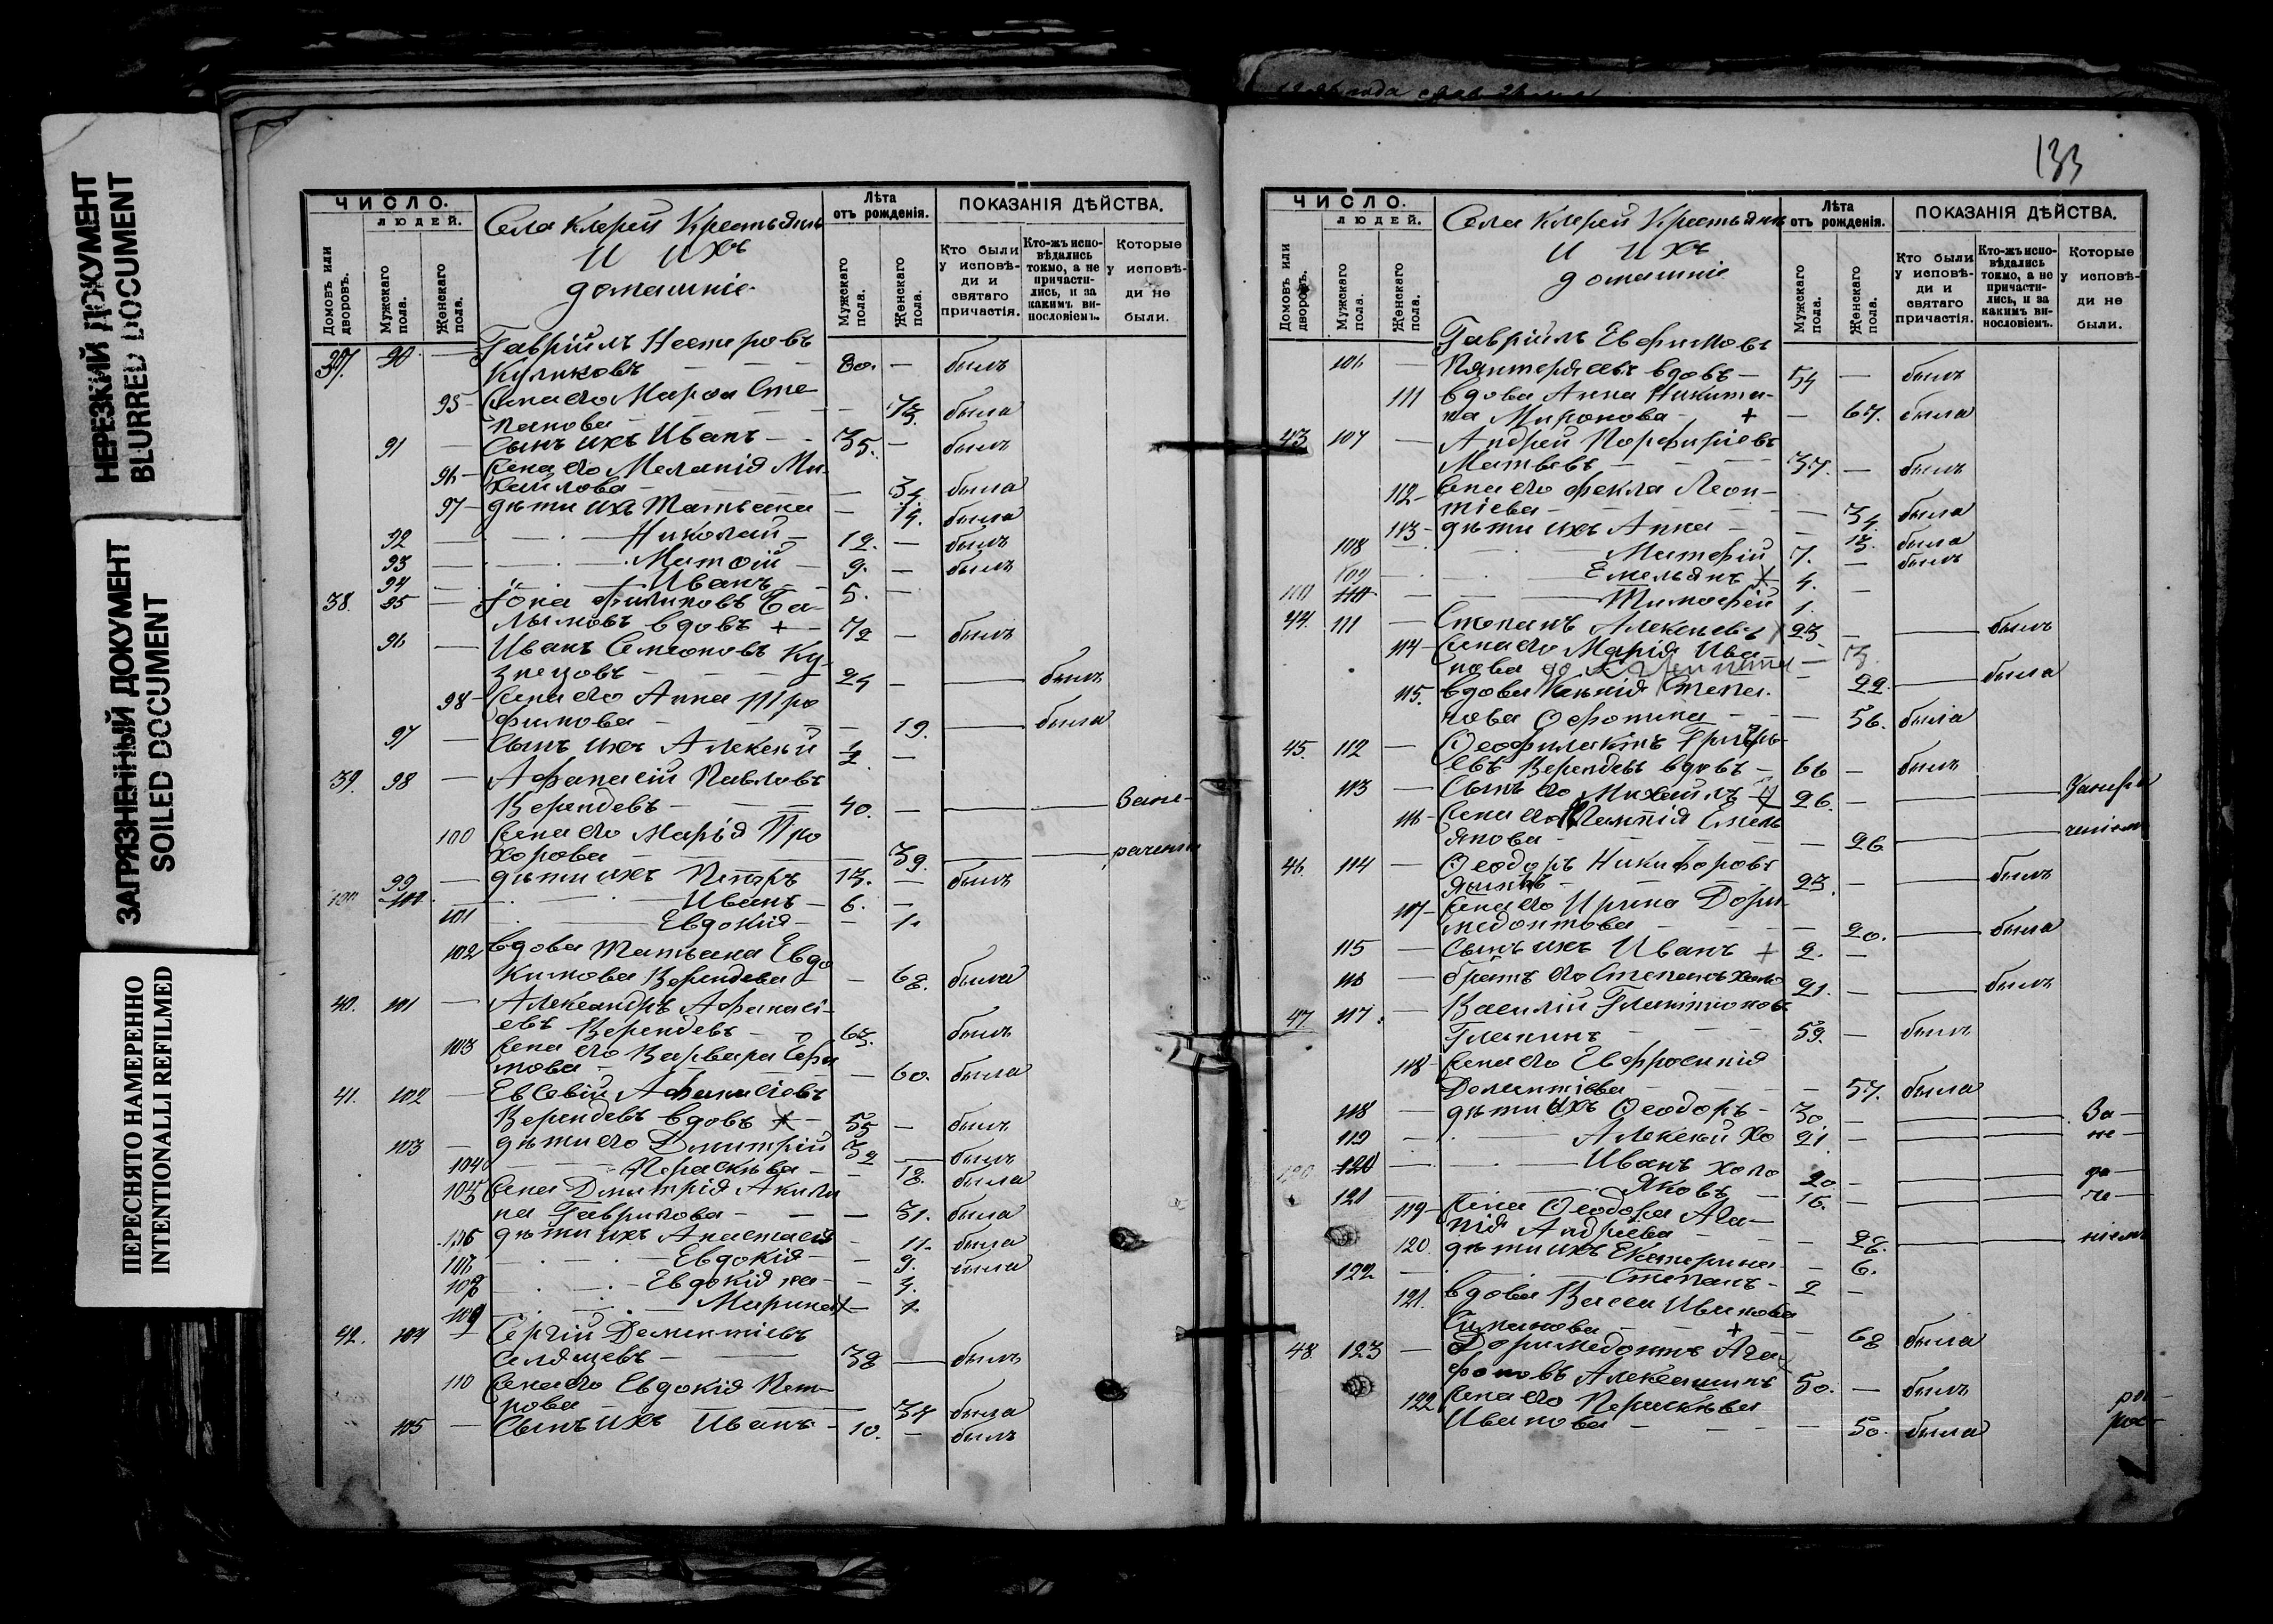 НЕРЕЗКИЙ ДОКУМЕНТ
BLURRED DOCUMENT
ЗАГРЯЗНЕННЫЙ ДОКУМЕНТ
SOILED DOCUMENT
ПЕРЕСНЯТО НАМЕРЕННО
INTENTIONALLI REFILMED
ЧИСЛО.
ЛЮДЕЙ.
Домовъ или дворовъ.
Мужскаго пола.
Женскаго пола.
Села Клерей Крестьянъ
и ихъ
домашніе
Лѣта отъ рожденія.
Мужскаго пола.
Женскаго пола.
ПОКАЗАНІЯ ДѢЙСТВА.
Кто были у исповѣ-ди и святаго причастія.
Кто-жъ испо-вѣдались токмо, а не причасти-лись, и за какимъ ви-нословіемъ.
Которые у исповѣ-ди не были.
37. 90 — Гавріилъ Нестеровъ
Куликовъ — 80. — былъ
95 — Жена его Марѳа Сте-
панова — 73. была
91 — Сынъ ихъ Иванъ — 35. — былъ
96 — Жена его Меланія Ми-
хаилова — 34 была
97 — дѣти ихъ Татьяна — 14. была
92 — Николай — 12. — былъ
93 — Матѳій — 9. — былъ
94 — Иванъ — 5. —
38. 95 — Іона Филиповъ Ба-
лыковъ вдовъ + 72 — былъ
96 — Иванъ Семеоновъ Ку-
знецовъ — 24 — былъ
98 — Жена его Анна Тро
фимова — 19. — была
97 — Сынъ ихъ Алексѣй 1/2 —
39. 98 — Афанасій Павловъ
Верендевъ — 40. — Зане-
100 Жена его Марія Про
хорова — 39. — раченіе
99 — дѣти ихъ Петръ 13. — былъ
100 — Иванъ — 6. —
101 — Евдокія — 1.
102 вдова Татьяна Евдо
кимова Верендева — 68. была
40. 101 — Александръ Афанасі-
евъ Верендевъ — 63. былъ
103 Жена его Варвара Ефи
мова — 60. была
41. 102 — Евсевій Афанасіевъ
Верендевъ вдовъ — 55 — былъ
103 — дѣти его Димитрій 32 — былъ
104 — Параскѣва — 18. была
105 Жена Димитрія Акили
на Гаврилова — 31. была
106 дѣти ихъ Анастасія — 11. была
107 — Евдокія — 9. была
108 — Евдокія — 4.
109 — Марина — 1
42. 104 — Сергій Дементіевъ
Селянцевъ — 38 — былъ
110 Жена его Евдокія Пет-
рова — 34 была
105 — Сынъ ихъ Иванъ — 10. — былъ
133
ЧИСЛО.
ЛЮДЕЙ.
Домовъ или дворовъ.
Мужскаго пола.
Женскаго пола.
Села Клерей Крестьянъ
и ихъ
домашніе
Лѣта отъ рожденія.
Мужскаго пола.
Женскаго пола.
ПОКАЗАНІЯ ДѢЙСТВА.
Кто были у исповѣ-ди и святаго причастія.
Кто-жъ испо-вѣдались токмо, а не причасти-лись, и за какимъ ви-нословіемъ.
Которые у исповѣ-ди не были.
Гавріилъ Евфимовъ
106 — вдовъ — 54 — былъ
111 вдова Анна Никити-
на Миронова + — 67. была
43 107 — Андрей Порфиріевъ
Матвѣевъ — 37. — былъ
112 — Жена его Фекла Леон-
тіева — 34. была
113 — дѣти ихъ Анна — 13. была
108 — 7. — былъ
109 — Емельянъ 4. —
110 — Тимоѳій 1.
44. 111 — Степанъ Алексѣевъ 23 — былъ
114 — Жена его Марія Ива-
нова — 22. — была
115. вдова Ксенія Степа-
нова — 56. была
45. 112 — Ѳеофилактъ Григорь-
евъ Верендевъ вдовъ — 66 — былъ
113 — Сынъ его Михаилъ 26. —
116 — Жена его Емель
янова — 26
46. 114 — Ѳеодоръ Никифоровъ
23. — былъ
117 — Жена его Ирина Дори-
медонтова — 20. — была
115 — Сынъ ихъ Иванъ + 2. —
116 — братъ его Степанъ холо 21. — былъ
47 117. — Василій
59. — былъ
118 — Жена его Евфросинія
Дементіева — 57. была
118 — дѣти ихъ Ѳеодоръ — 30 — За —
119 — Алексѣй хо 21. — не —
120 — Иванъ холо 20 — ра —
121 — Яковъ — 16. — че —
119 — Жена Ѳеодора Ага-
пія Андреева — 26. — ніемъ
120. дѣти ихъ Екатерина — 6.
122 — Степанъ — 2 —
121. вдова Васса Иванова
+ — 68 была
48. 123 — Доримедонтъ Ага-
фоновъ Алексашинъ 50. — былъ
122 Жена его Параскѣва
Иванова — 50. была